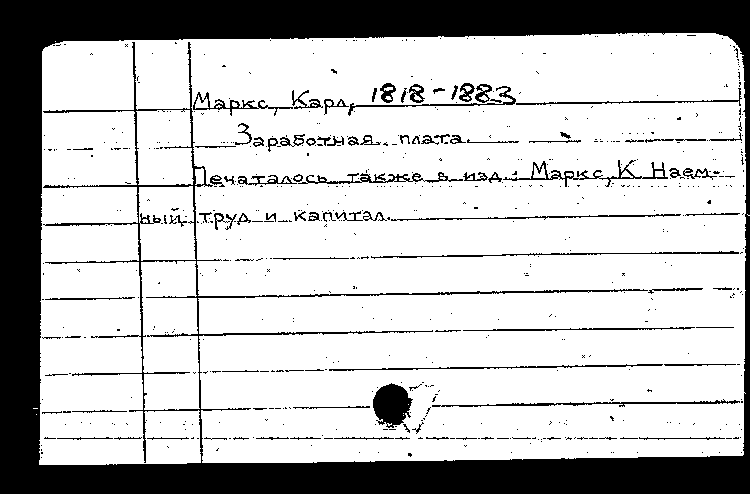 Маркс, Карл, 1818-1883
Заработная плата.
Печаталось также в изд.: Маркс, К Наем-
ный труд и капитал.